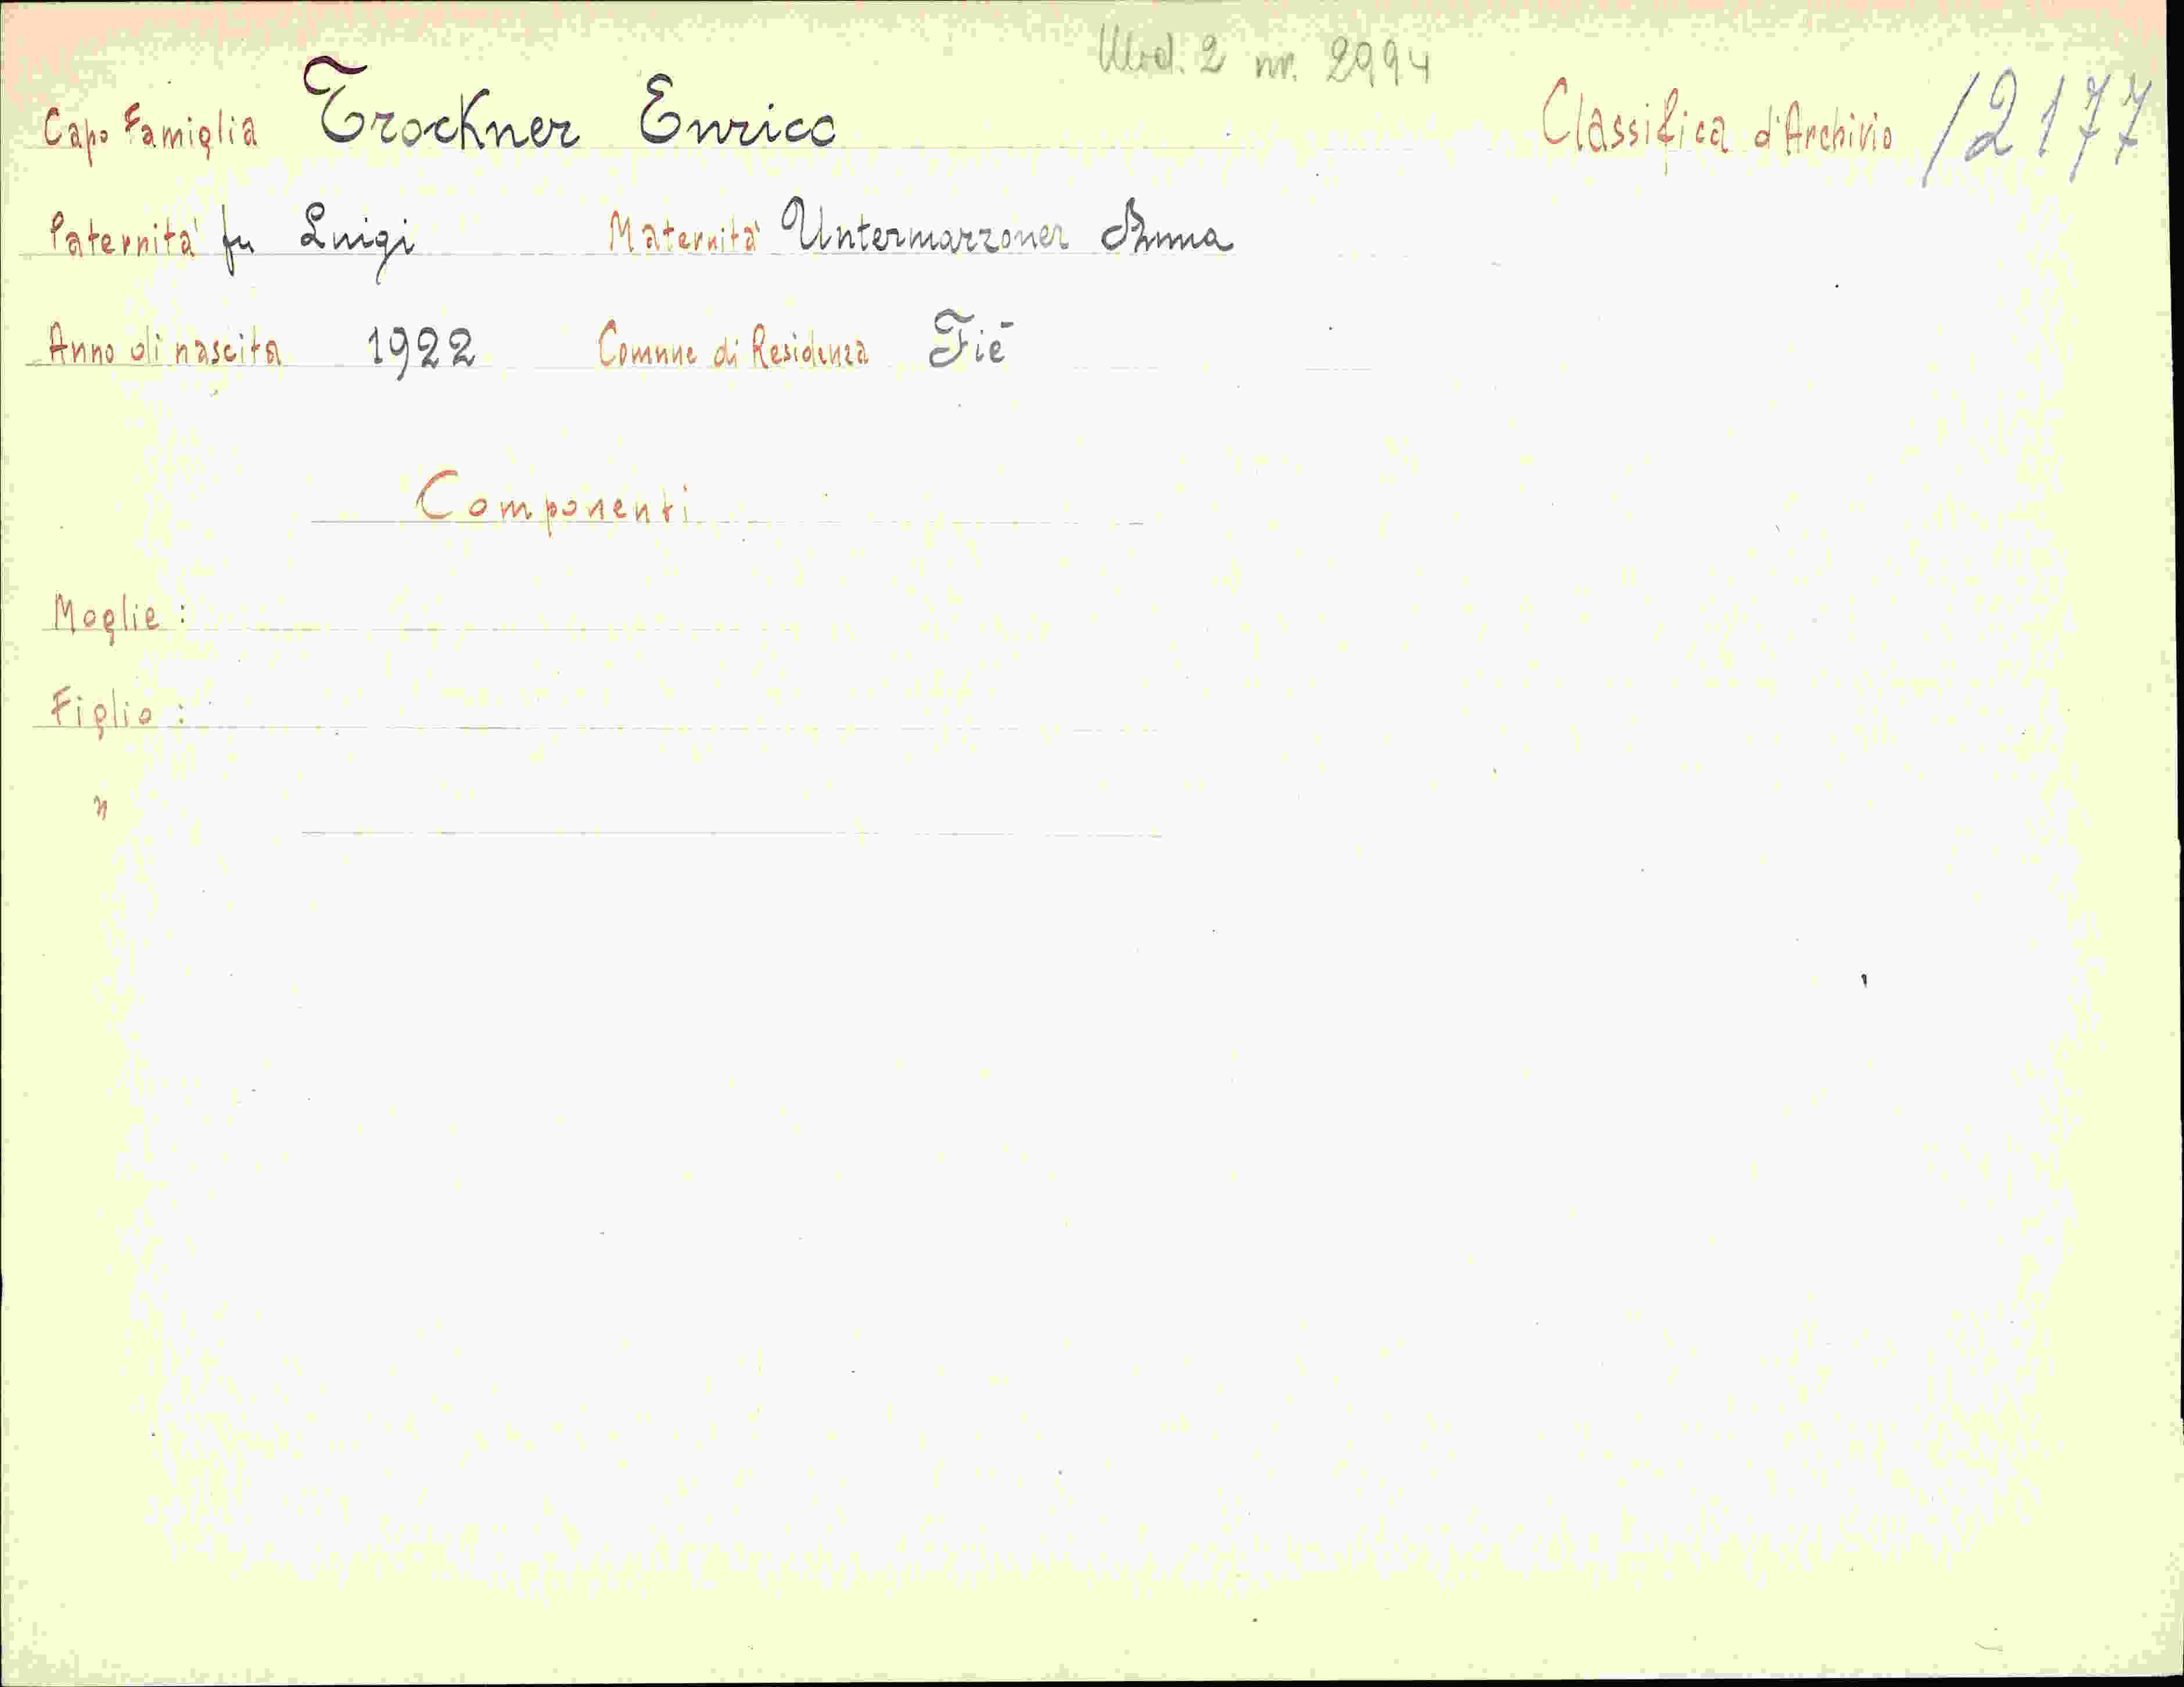 Mod. 2 nr. 2994
Capo Famiglia Trockner Enrico Classifica d'Archivio 12177
Paternità fu Luigi Maternità Untermarzoner Anna
Anno di nascita 1922 Comune di Residenza Fiè
Componenti
Moglie :
Figlio :
"